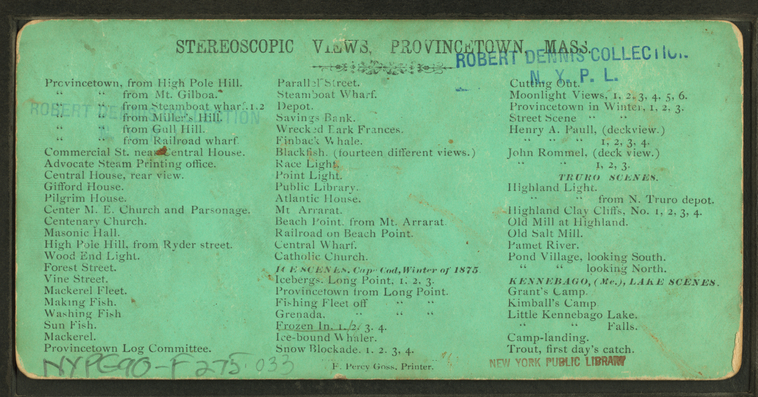 STEREOSCOPIC VIEWS, PROVINCETOWN, MASS.
ROBERT DENNIS COLLECTION
N. Y. P. L.
Provincetown, from High Pole Hill.
“ “ from Mt. Gilboa.
“ “ from Steamboat wharf. 1.2
“ “ from Miller's Hill.
“ “ from Gull Hill.
“ “ from Railroad wharf.
Commercial St. near Central House.
Advocate Steam Printing office.
Central House, rear view.
Gifford House.
Pilgrim House.
Center M. E. Church and Parsonage.
Centenary Church.
Masonic Hall.
High Pole Hill, from Ryder street.
Wood End Light.
Forest Street.
Vine Street.
Mackerel Fleet.
Making Fish.
Washing Fish
Sun Fish.
Mackerel.
Provincetown Log Committee.
Parallel Street.
Steamboat Wharf.
Depot.
Savings Bank.
Wrecked Bark Frances.
Finback Whale.
Blackfish. (fourteen different views.)
Race Light.
Point Light.
Public Library.
Atlantic House.
Mt. Ararat.
Beach Point. from Mt. Arrarat
Railroad on Beach Point.
Central Wharf.
Catholic Church.
ICE SCENES, Cape Cod, Winter of 1875
Icebergs. Long Point, 1. 2. 3.
Provincetown from Long Point.
Fishing Fleet off “ “
Grenada. “ “ “
Frozen In. 1. 2. 3. 4.
Ice-bound Whaler.
Snow Blockade. 1. 2. 3. 4.
Cutting Out.
Moonlight Views, 1, 2, 3, 4, 5, 6.
Provincetown in Winter, 1, 2, 3.
Street Scene “ “
Henry A. Paull, (deckview.)
“ “ “ 1, 2, 3, 4.
John Rommel, (deck view.)
“ “ 1, 2, 3.
TRURO SCENES.
Highland Light.
“ “ from N. Truro depot.
Highland Clay Cliffs, No. 1, 2, 3, 4.
Old Mill at Highland.
Old Salt Mill.
Pamet River.
Pond Village, looking South.
“ “ looking North.
KENNEBAGO, (Me.), LAKE SCENES.
Grant's Camp.
Kimball's Camp.
Little Kennebago Lake.
“ “ Falls.
Camp-landing.
Trout, first day's catch.
F. Percy Goss, Printer.
NYPG90-F275 033
NEW YORK PUBLIC LIBRARY